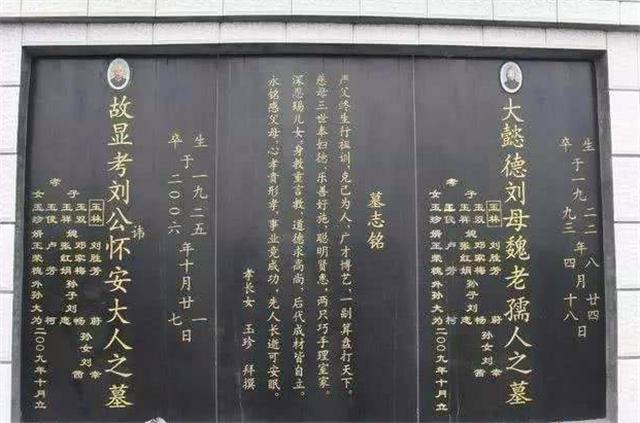 生
卒于一九二二年八月廿四日
一九九三 四 十八
大懿德刘母魏老孺人之墓
玉林 刘胜芳 蔚
子 玉双 邓家梅 畅
玉祥 张红娟 孙子刘志 孙女刘幸
孝 玉俊 卢芳 柯 茜
女 玉珍 娟 玉荣 槐 外孙大为 二00九年十月立
墓志铭
严父终生行祖训,克己为人,广才博艺,一副算盘打天下。
慈母三世奉妇德,乐善好施,聪明贤惠,两只巧手理室家。
深恩赐儿女,身教重言教,道德求高尚,后代成材皆自立。
永铭感父母,心孝贵形孝,事业竟成功,先人长逝可安眠。
孝长女 玉珍 拜撰
生 一九二五 一
卒于二00六年十月廿七日
故显考刘公讳怀安大人之墓
玉林 刘胜芳 蔚
子 玉双 邓家梅 畅
玉祥 张红娟 孙子刘志 孙女刘幸
孝 玉俊 卢芳 柯 茜
女 玉珍 娟 玉荣 槐 外孙大为 二00九年十月立